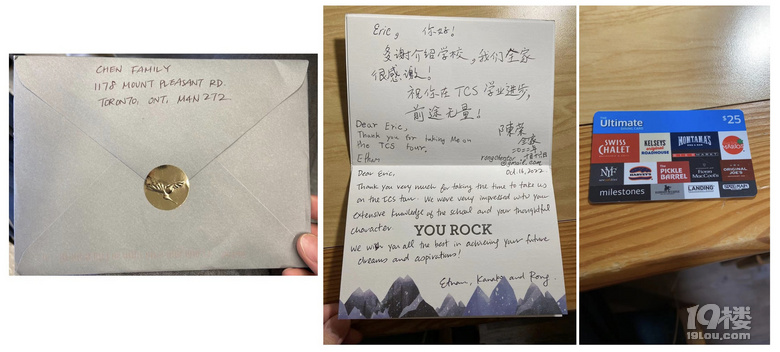 CHEN FAMILY
1178 MOUNT PLEASANT RD.
TORONTO, ONT. M4N 2T2
Eric, 你好!
多谢介绍学校,我们全家
很感激!
祝你在TCS学业进步,
前途无量!
陳榮
全家
Dear Eric,
Thank you for taking me on
the TCS tour.
Ethan
Dear Eric,
Oct. 16, 2022
Thank you very much for taking the time to take us
on the TCS tour. We were very impressed with your
extensive knowledge of the school and your thoughtful
character.
YOU ROCK
We wish you all the best in achieving your future
dreams and aspirations!
Ethan, and Rong
The Ultimate
$25
SWISS
CHALET
KELSEYS
ORIGINAL
ROADHOUSE
MONTANA'S
BBQ & BAR
HARVEY'S
The
PICKLE
BARREL
East Side
Mario's
ORIGINAL
JOE'S
milestones
LANDING
19楼
19lou.com